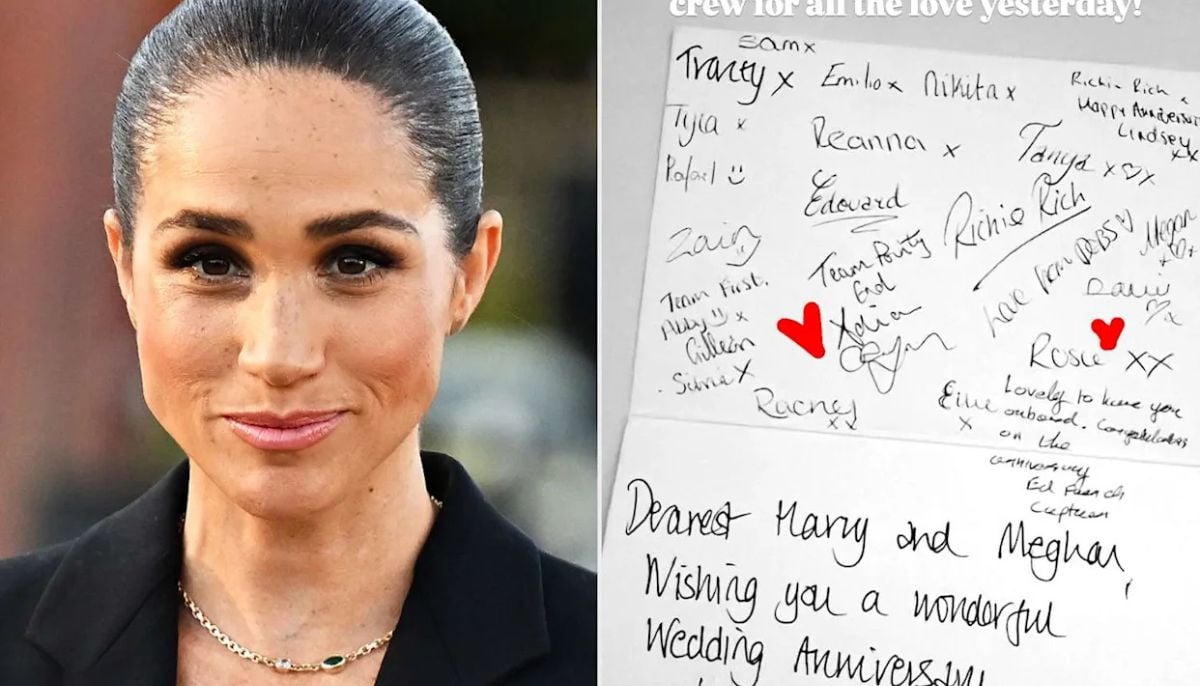 crew for all the love yesterday!
samx
Tracey x Emilio x Nikita x
Richie Rich x
Happy Anniversary
Lindsey
xx
Tyla x
Reanna x
Tanya x♡x
Rafael
Edouard
Richie Rich
Zain
Team Purity
End
Love from DEBS ♡
Megan
x♡x
Team First.
Abby x
Gillean
Silvia x
Rosie xx
Racney
xx
Ellie
x
Lovely to have you
onboard. Congratulations
on the
anniversary
Ed French
Captain
Dearest Harry and Meghan,
Wishing you a wonderful
Wedding Anniversary